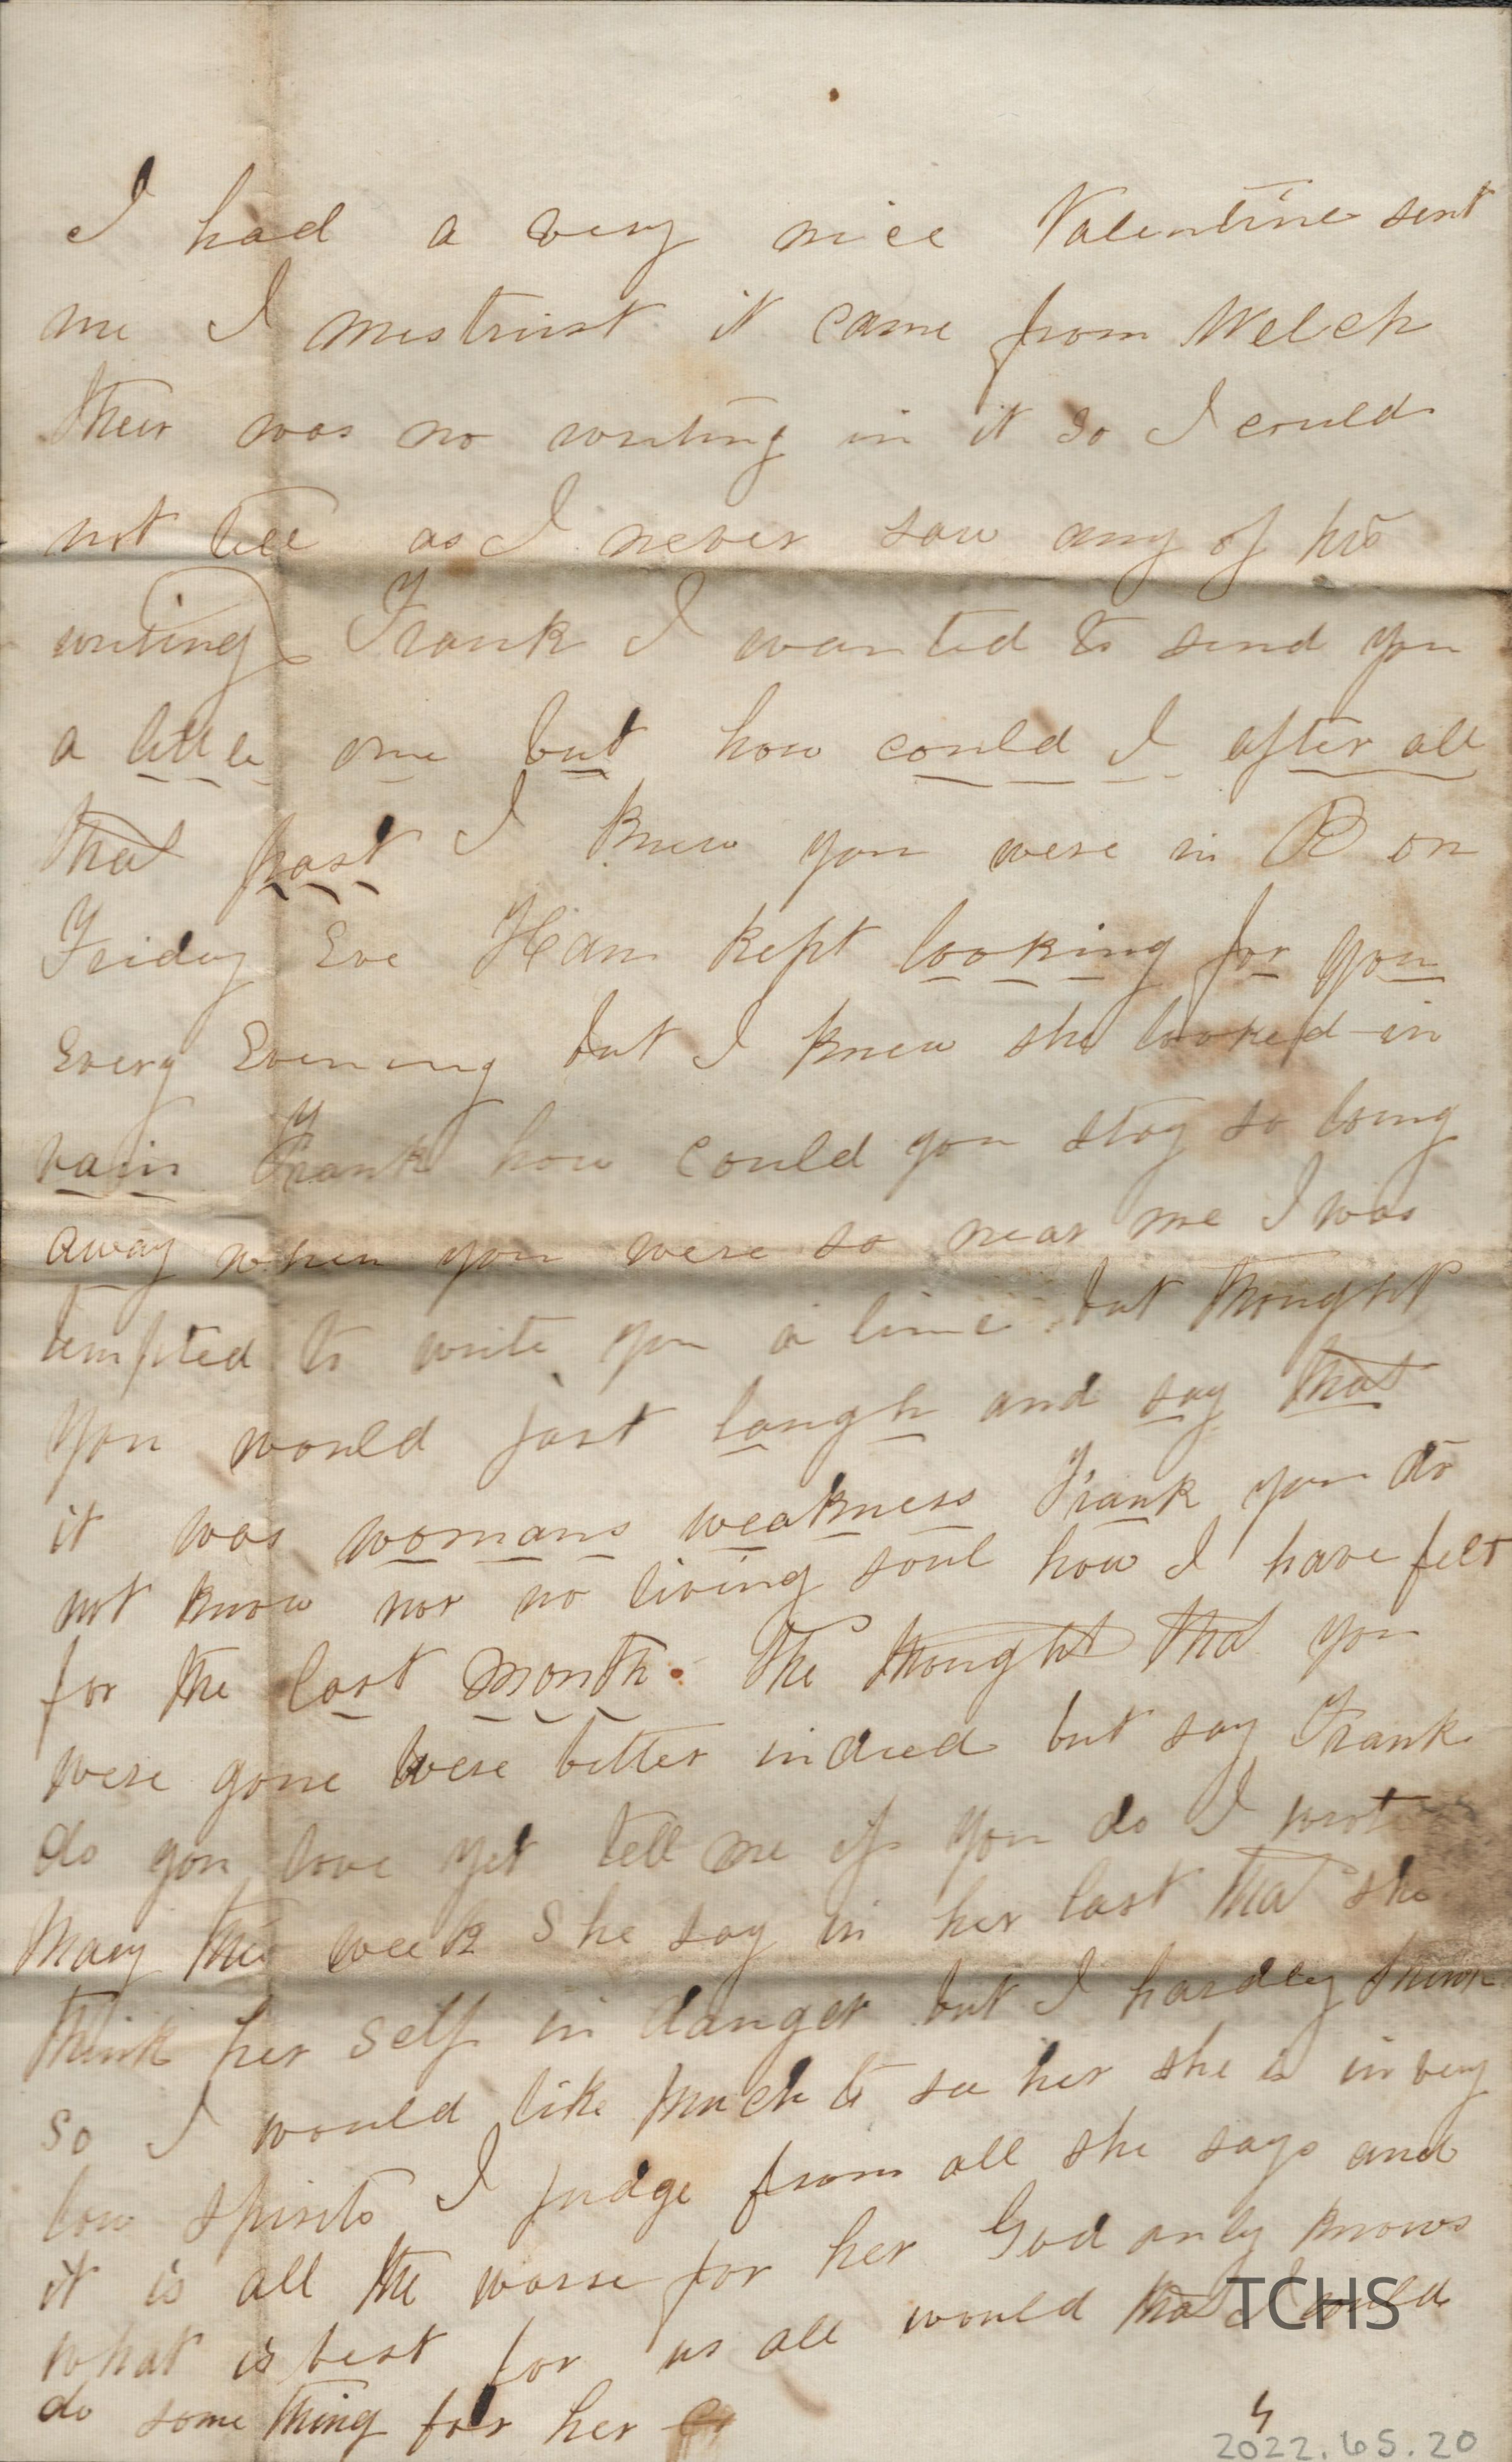 I had a very nice Valentine sent
me I mistrust it came from Welch
their was no writing in it So I could
not tell as I never saw any of his
writing Frank I wanted to send you
a little one but how could I after all
that past I knew you were in R on
Friday Eve Ham kept looking for you
Every Evening but I knew she looked in
vain Frank how could you stay so long
away when you were so near me I was
tempted to write you a line but thought
you would just laugh and say that
it was womans weakness Frank you do
not know nor no living soul how I have felt
for the last month. The thought that you
were gone were bitter indeed but say Frank
do you love yet tell me if you do I
Mary this week She say in her last that she
think her self in danger but I hardley think
So I would like much to see her she is in very
low spirits I judge from all she says and
it is all the worse for her God only knows
what is best for us all would that I could
do some thing for her
TCHS
2022.65.20